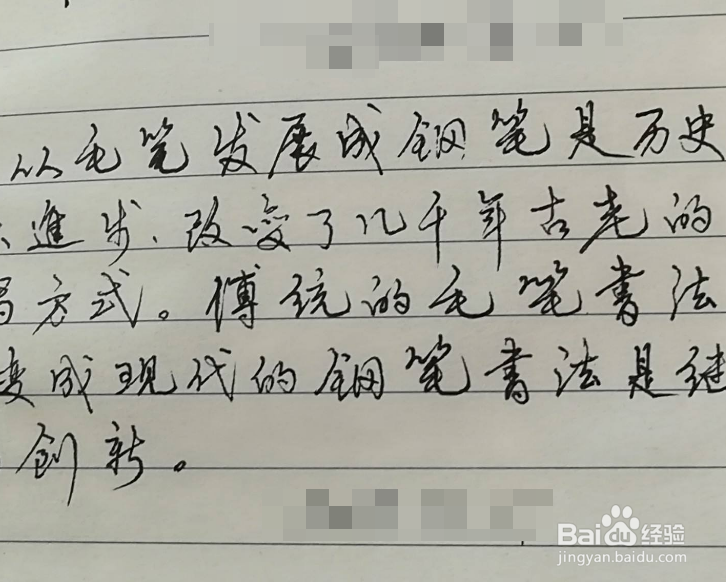 从毛笔发展成钢笔是历史
進步、改变了几千年古老的
方式。傳统的毛笔書法
变成现代的钢笔書法是继
创新。
Baidu经验
jingyan.baidu.com